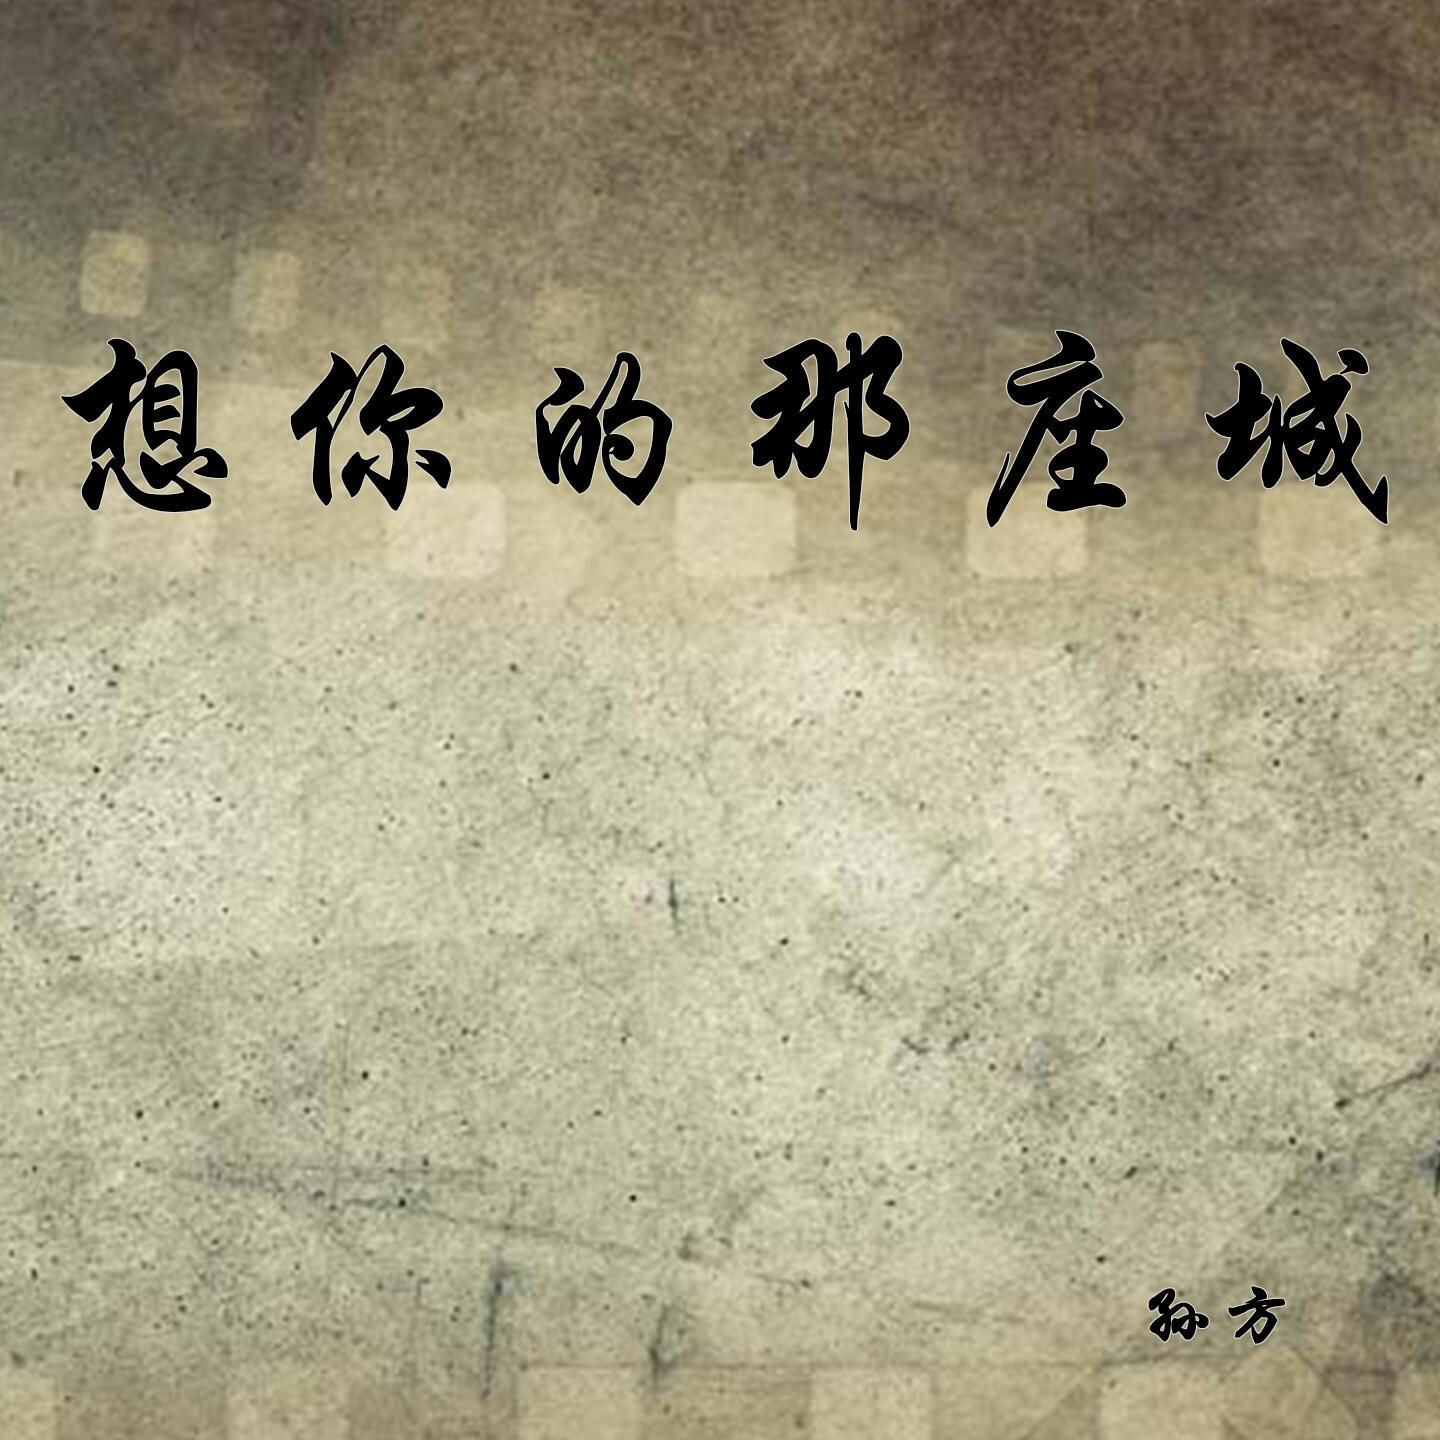 想你的那座城
孙方